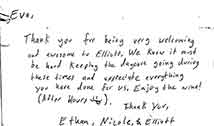 Eva,
Thank you for being very welcoming
and awesome to Elliott. We know it must
be hard keeping the daycare going during
these times and appreciate everything
you have done for us. Enjoy the wine!
(After Hours ).
Thank You,
Ethan, Nicole, & Elliott